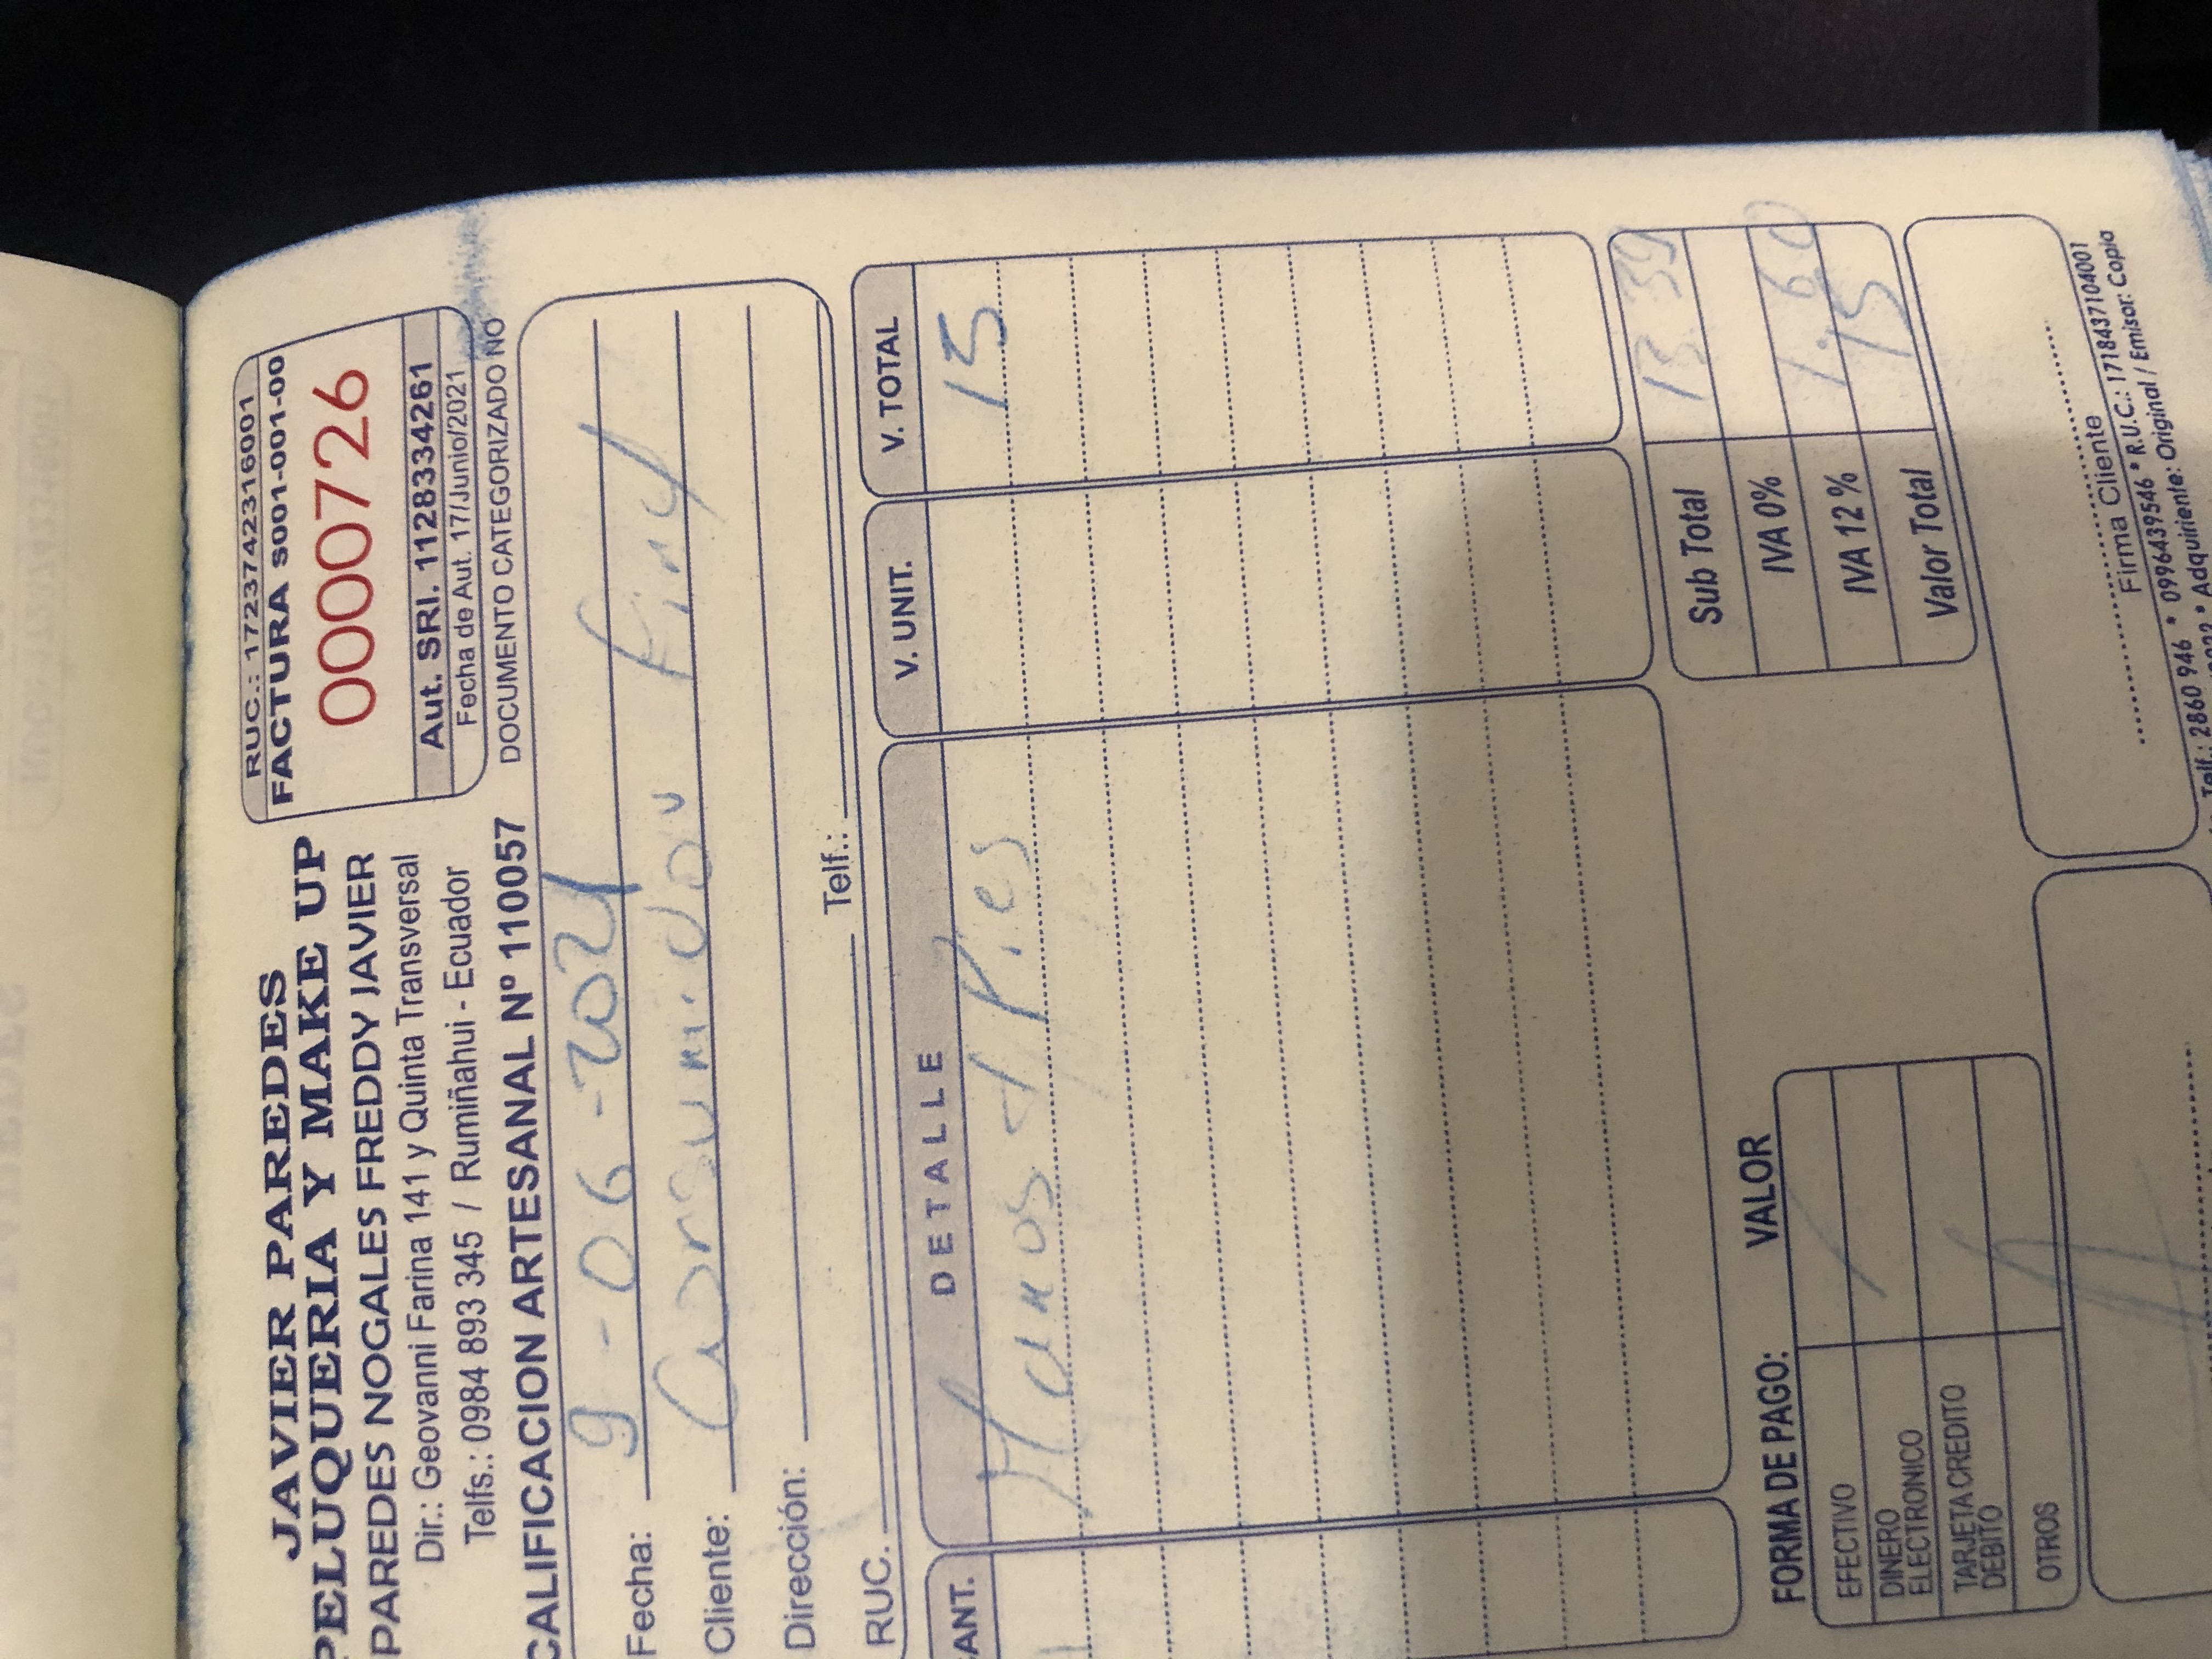 JAVIER PAREDES
PELUQUERIA Y MAKE UP
PAREDES NOGALES FREDDY JAVIER
Dir.: Geovanni Farina 141 y Quinta Transversal
Telfs.: 0984 893 345 / Rumiñahui - Ecuador
CALIFICACION ARTESANAL Nº 110057
RUC.: 1723742316001
FACTURA S001-001-00
0000726
Aut. SRI. 1128334261
Fecha de Aut. 17/Junio/2021
DOCUMENTO CATEGORIZADO NO
Fecha: 9-06-2021
Cliente: Consumidor Final
Dirección:
RUC. Telf.:
CANT. DETALLE V. UNIT. V. TOTAL
1 Manos + Pies 15
Sub Total 13.39
IVA 0%
IVA 12% 1.60
Valor Total 15
FORMA DE PAGO: VALOR
EFECTIVO /
DINERO ELECTRONICO
TARJETA CREDITO DEBITO
OTROS
Firma Cliente
Telf.: 2860 946 * 0996439546 * R.U.C.: 1718437104001
* Adquiriente: Original / Emisor: Copia